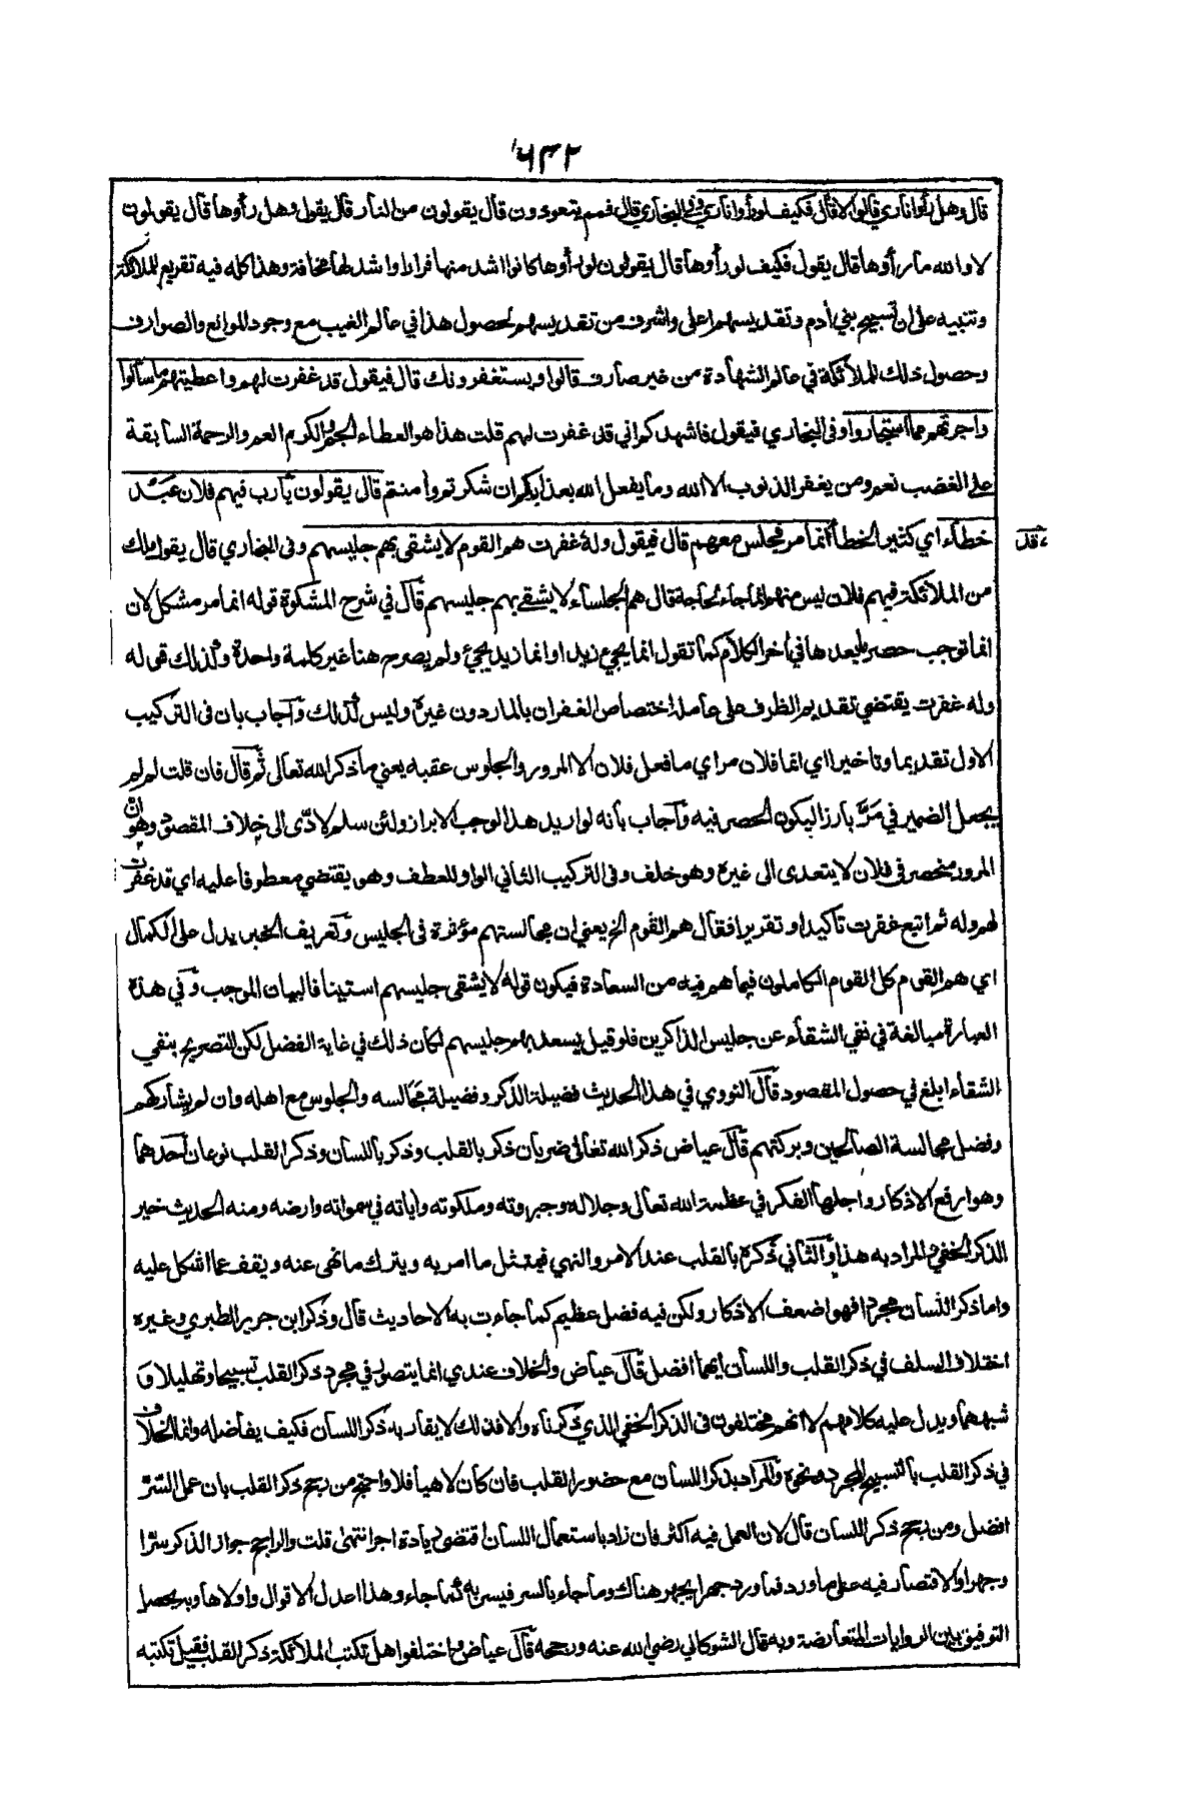 ٦٣٢
قال وهل رأوا ناري قالوا لا قال فكيف لو رأوا ناري وفي البخاري قال فمم يتعوذون قال يقولون من النار قال يقول وهل رأوها قال يقولون
لا والله ما رأوها قال يقول فكيف لو رأوها قال يقولون لو رأوها كانوا اشد منها فرارا واشد لها مخافة وهذا كله فيه تقريع للملائكة
وتنبيه على ان تسبيح بني أدم وتقديسهم اعلى واشرف من تقديسهم لحصول هذا في عالم الغيب مع وجود الموانع والصوارف
وحصول ذلك للملائكة في عالم الشهادة من غير صارف قالوا ويستغفرونك قال فيقول قد غفرت لهم واعطيتهم ما سألوا
واجرتهم مما استجاروا وفي البخاري فيقول فاشهدكم اني قد غفرت لهم قلت هذا هو العطاء الجم والكرم العم والرحمة السابقة
على الغضب نعم ومن يغفر الذنوب الا الله وما يفعل الله بعذابكم ان شكرتم وأمنتم قال يقولون يا رب فيهم فلان عبد
خطاء اي كثير الخطأ انما مر فجلس معهم قال فيقول وله غفرت هم القوم لا يشقى بهم جليسهم وفي البخاري قال يقول ملك
قد
من الملائكة فيهم فلان ليس منهم انما جاء لحاجة قال هم الجلساء لا يشقى بهم جليسهم قال في شرح المشكوة قوله انما مر مشكل لان
انما توجب حصر ما بعدها في أخر الكلام كما تقول انما يجيء زيد او انما زيد يجيء ولم يصرح هنا غير كلمة واحدة وكذلك قوله
وله غفرت يقتضي تقديم الظرف على عامله اختصاص الغفران بالمار دون غيره وليس كذلك وآجاب بان في التركيب
الاول تقديما وتاخيرا اي انما فلان مر اي ما فعل فلان الا المرور والجلوس عقبه يعني ما ذكر الله تعالى ثم قال فان قلت لم لم
يجعل الضمير في مر بارزا ليكون الحصر فيه وآجاب بأنه لو اريد هذا لوجب الابراز ولئن سلم لادى الى خلاف المقصود وهو ان
المرور منحصر في فلان لا يتعدى الى غيره وهو خلف وفي التركيب الثاني الواو للعطف وهو يقتضي معطوفا عليه اي قد غفرت
لهم وله ثم اتبع غفرت تاكيدا وتقريرا فقال هم القوم الخ يعني ان مجالستهم مؤثرة في الجليس وتعريف الخبر يدل على الكمال
اي هم القوم كل القوم الكاملون فيما هم فيه من السعادة فيكون قوله لا يشقى جليسهم استينافا لبيان الموجب وفي هذه
العبارة مبالغة في نفي الشقاء عن جليس الذاكرين فلو قيل يسعد بهم جليسهم لكان ذلك في غاية الفضل لكن التصريح بنفي
الشقاء ابلغ في حصول المقصود قال النووي في هذا الحديث فضيلة الذكر وفضيلة مجالسه والجلوس مع اهله وان لم يشاركهم
وفضل مجالسة الصالحين وبركتهم قال عياض ذكر الله تعالى ضربان ذكر بالقلب وذكر باللسان وذكر القلب نوعان احدهما
وهو ارفع الاذكار واجلها الفكر في عظمة الله تعالى وجلاله وجبروته وملكوته وأياته في سمواته وارضه ومنه الحديث خير
الذكر الخفي والمراد به هذا والثاني ذكره بالقلب عند الامر والنهي فيمتثل ما امر به ويترك ما نهى عنه ويقف عما اشكل عليه
واما ذكر اللسان مجردا فهو اضعف الاذكار ولكن فيه فضل عظيم كما جاءت به الاحاديث قال وذكر ابن جرير الطبري وغيره
اختلاف السلف في ذكر القلب واللسان أيهما افضل قال عياض والخلاف عندي انما يتصور في مجرد ذكر القلب تسبيحا وتهليلا و
شبههما ويدل عليه كلامهم لا انهم مختلفون في الذكر الخفي الذي ذكرناه والا فذلك لا يقاربه ذكر اللسان فكيف يفاضله وانما الخلاف
في ذكر القلب بالتسبيح المجرد ونحوه والمراد بذكر اللسان مع حضور القلب فان كان لاهيا فلا واحتج من رجح ذكر القلب بان عمل السر
افضل ومن رجح ذكر اللسان قال لان العمل فيه اكثر فان زاد باستعمال اللسان اقتضى زيادة اجر انتهى قلت والراجح جواز الذكر سرا
وجهرا والاقتصار فيه على ما ورد فما ورد جهرا يجهر هناك وما جاء بالسر فيسر به كما جاء وهذا اعدل الاقوال واولاها وبه يحصل
التوفيق بين الروايات المتعارضة وبه قال الشوكاني رضي الله عنه ورحمه قال عياض واختلفوا هل تكتب الملائكة ذكر القلب فقيل تكتبه